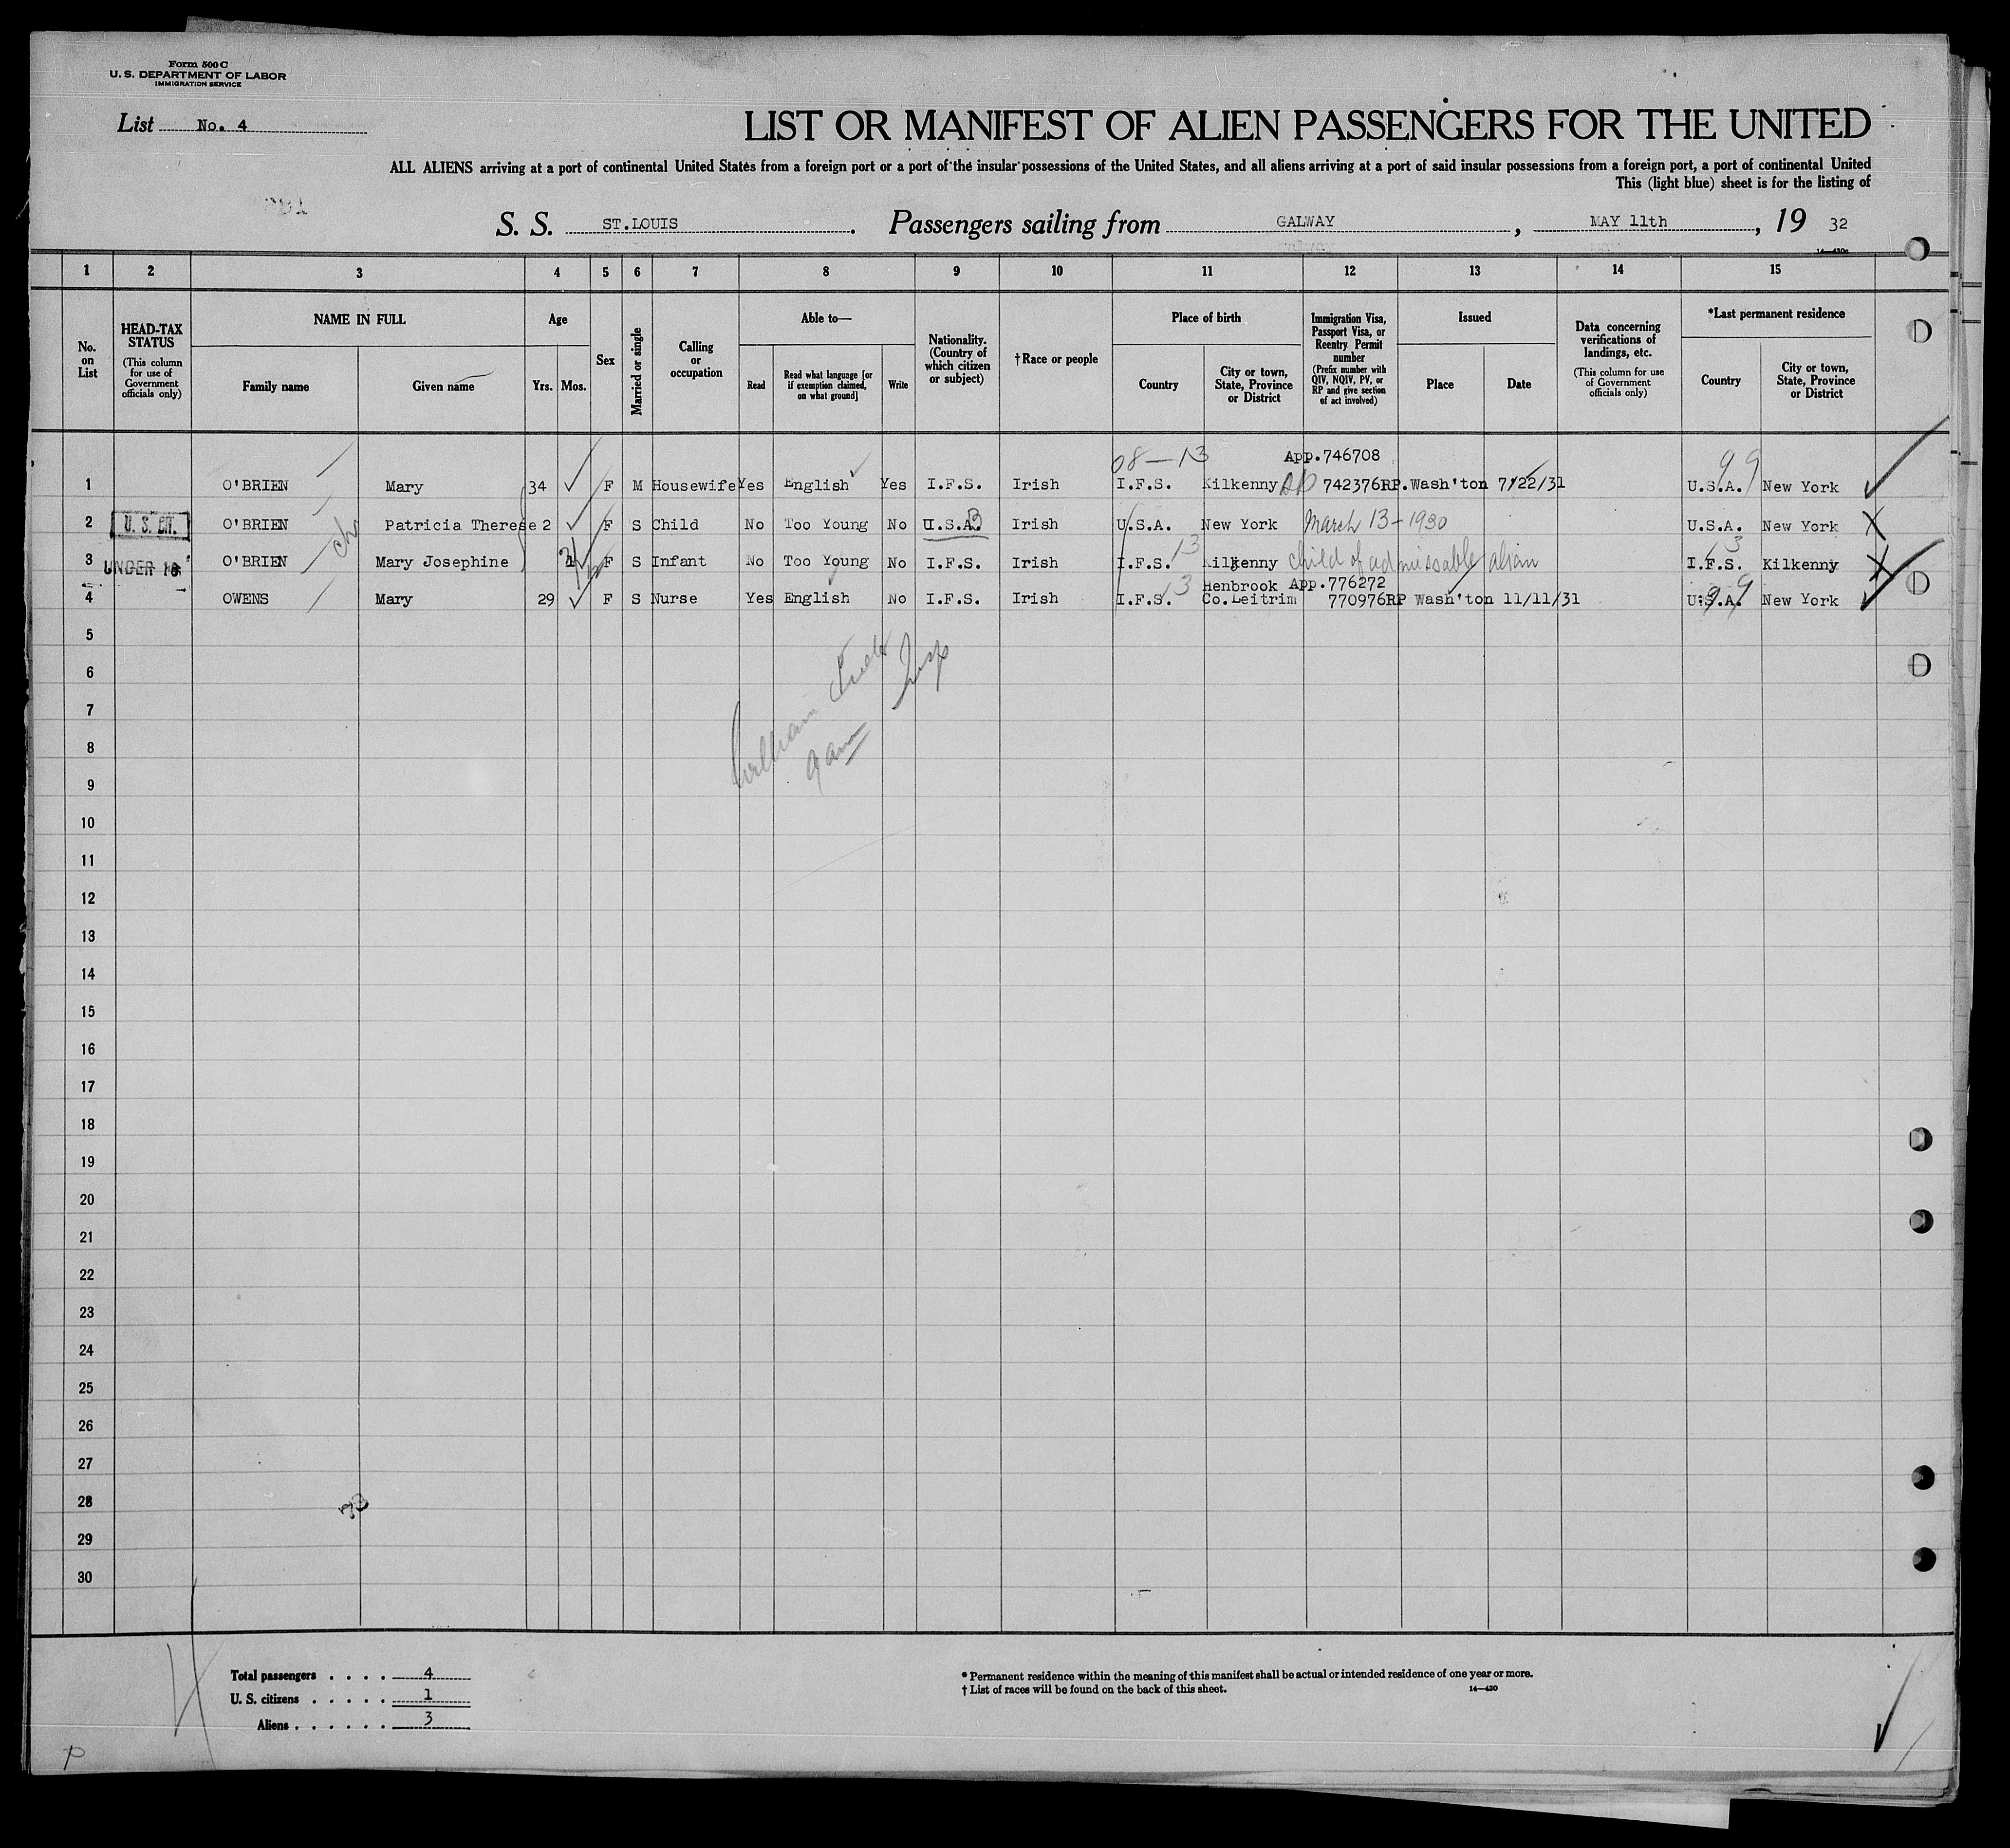 Form 500 C
U. S. DEPARTMENT OF LABOR
IMMIGRATION SERVICE
List No. 4
LIST OR MANIFEST OF ALIEN PASSENGERS FOR THE UNITED
ALL ALIENS arriving at a port of continental United States from a foreign port or a port of the insular possessions of the United States, and all aliens arriving at a port of said insular possessions from a foreign port, a port of continental United
This (light blue) sheet is for the listing of
S. S. ST.LOUIS. Passengers sailing from GALWAY, MAY 11th, 19 32
14—430a
1 2 3 4 5 6 7 8 9 10 11 12 13 14 15
No. on List
HEAD-TAX STATUS (This column for use of Government officials only)
NAME IN FULL
Family name
Given name
Age
Yrs.
Mos.
Sex
Married or single
Calling or occupation
Able to—
Read
Read what language [or if exemption claimed, on what ground]
Write
Nationality. (Country of which citizen or subject)
†Race or people
Place of birth
Country
City or town, State, Province or District
Immigration Visa, Passport Visa, or Reentry Permit number (Prefix number with QIV, NQIV, PV, or RP and give section of act involved)
Issued
Place
Date
Data concerning verifications of landings, etc. (This column for use of Government officials only)
*Last permanent residence
Country
City or town, State, Province or District
08—13 App.746708 99
1 O'BRIEN Mary 34 F M Housewife Yes English Yes I.F.S. Irish I.F.S. Kilkenny 742376RP. Wash'ton 7/22/31 U.S.A. New York
2 U. S. CIT. O'BRIEN Patricia Therese 2 F S Child No Too Young No U.S.A. Irish U.S.A. New York March 13-1930 U.S.A. New York
ch
13 13
3 UNDER 16 O'BRIEN Mary Josephine F S Infant No Too Young No I.F.S. Irish I.F.S. Kilkenny child of admissable alien I.F.S. Kilkenny
Henbrook App.776272
4 OWENS Mary 29 F S Nurse Yes English No I.F.S. Irish I.F.S. 13 Co.Leitrim 770976RP Wash'ton 11/11/31 U.S.A. 99 New York
5
6
William Insp
7
8
9
10
11
12
13
14
15
16
17
18
19
20
21
22
23
24
25
26
27
28
29
30
Total passengers . . . . 4
U. S. citizens . . . . . 1
Aliens . . . . . . 3
* Permanent residence within the meaning of this manifest shall be actual or intended residence of one year or more.
† List of races will be found on the back of this sheet. 14—430
P